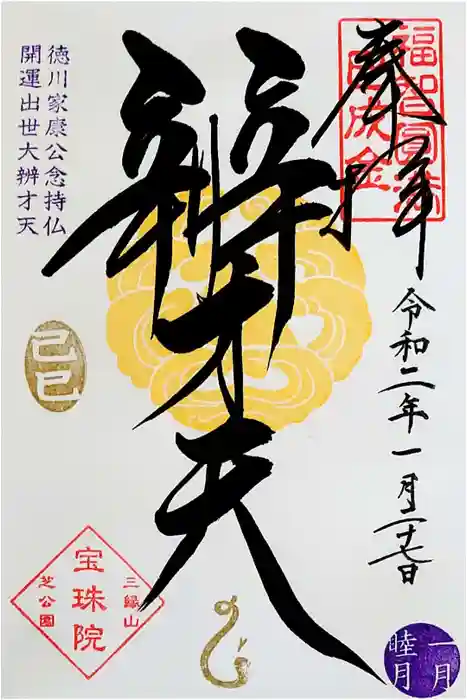 奉拝
令和二年一月二十七日
辨才天
徳川家康公念持仏
開運出世大辨才天
己巳
三縁山
宝珠院
芝公園
一月
睦月